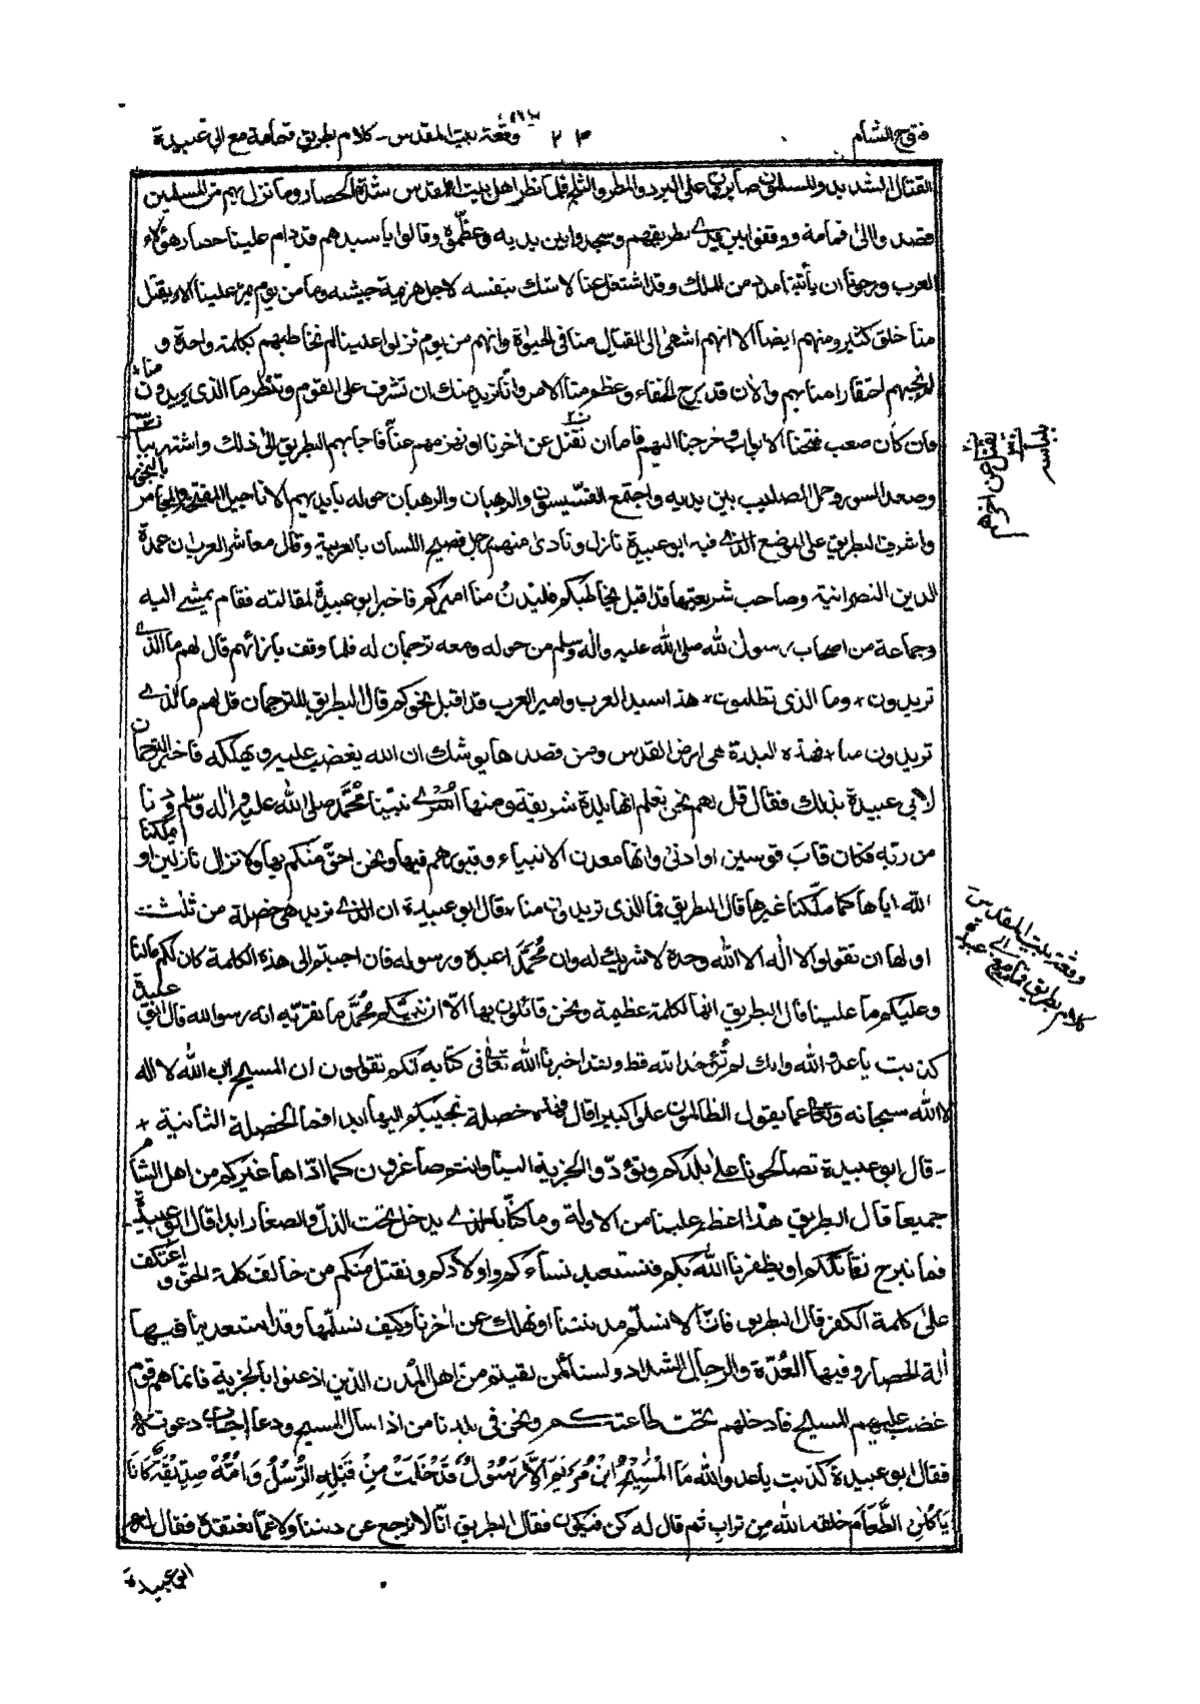 فتوح الشام ٢٢٣ وقعة بيت المقدس - كلام بطريق قمامة مع ابي عبيدة
القتال الشديد والمسلمون صابرون على البرد والمطر والثلج فلما نظر اهل بيت المقدس شدة الحصار وما نزل بهم من المسلمين
قصدوا الى قمامة ووقفوا بين يدے بطريقهم وسجدوا بين يديه وعظموه وقالوا يا سيدهم قد دام علينا حصار هؤلاء
العرب ورجونا ان يأتينا مدد من الملك وقد اشتغل عنا لا شك بنفسه لاجل هزيمة جيشه وما من يوم يمر علينا الا ويقتل
منا خلق كثير ومنهم ايضا الا انهم اشهى الى القتال منا في الحيوة وانهم من يوم نزلوا علينا لم نخاطبهم بكلمة واحدة و
لم نجبهم احتقارا منا بهم والان قد برح الخفاء وعظم منا الامر وانا نريد منك ان تشرف على القوم وتنظر ما الذى يريدون منا
وان كان صعب فتحنا الابواب وخرجنا اليهم فاما ان نقتل عن اخرنا او نهزمهم عنا فاجابهم البطريق الى ذلك واشتهر
وصعد السور وحمل الصليب بين يديه واجتمع القسيسون والرهبان والرهبان حوله بايديهم الاناجيل المفتحة والمجامر بالبخور
واشرف البطريق على الموضع الذے فيه ابو عبيدة نازل ونادى منهم رجل فصيح اللسان بالعربية وقال معاشر العرب ان عمدة
الدين النصرانية وصاحب شريعتها قد اقبل يخاطبكم فليدن منا اميركم فاخبر ابو عبيدة لمقالته فقام يمشے اليه
وجماعة من اصحاب رسول الله صلى الله عليه واله وسلم من حوله ومعه ترجمان له فلما وقف بازائهم قال لهم ما الذے
تريدون * وما الذى تطلبون * هذا سيد العرب وامير العرب قد اقبل نحوكم قال البطريق للترجمان قل لهم ما الذے
تريدون منا * فهذه البلدة هى ارض القدس ومن قصدها يوشك ان الله يغضب عليه ويهلكه فاخبر الترجمان
لابي عبيدة بذلك فقال قل لهم نحن نعلم انها بلدة شريفة ومنها اسرے نبينا محمد صلى الله عليه واله وسلم ودنا
من ربه فكان قاب قوسين او ادنى وانها معدن الانبياء وقبورهم فيها ونحن احق منكم بها ولا نزال نازلين او يملكنا
الله اياها كما ملكنا غيرها قال البطريق فما الذى تريدون منا * قال ابو عبيدة ان الذے نريد هى خصلة من ثلث
اولها ان تقولوا لا اله الا الله وحده لا شريك له وان محمدا عبده ورسوله فان اجبتم الى هذه الكلمة كان لكم ما لنا
وعليكم ما علينا قال البطريق انها كلمة عظيمة ونحن قائلون بها الا ان نبيكم محمد ما نقر به انه رسول الله قال ابو عبيدة
كذبت يا عدو الله وانك لم توحد الله قط ولقد اخبرنا الله تعالى في كتابه انكم تقولون ان المسيح ابن الله لا اله
الا الله سبحانه وتعالى عما يقول الظالمون علوا كبيرا قال فهذه خصلة لا نجيبكم اليها ابدا فما الخصلة الثانية *
- قال ابو عبيدة تصالحونا على بلدكم وتؤدوا الجزية الينا وانتم صاغرون كما اداها غيركم من اهل الشام
جميعا قال البطريق هذا اعظم علينا من الاولة وما كنا بالذے يدخل تحت الذل والصغار ابدا قال ابو عبيدة
فما نبرح نقاتلكم او يظفرنا الله بكم فنستعبد نساءكم واولادكم ونقتل منكم من خالف كلمة الحق و اعتكف
على كلمة الكفر قال البطريق فانا لا نسلم مدينتنا او نهلك عن اخرنا وكيف نسلمها وقد استعدينا فيها
الة الحصار وفيها العدة والرجال الشداد ولسنا كمن لقيتم من اهل المدن الذين اذعنوا بالجزية فانما هم قوم
غضب عليهم المسيح فادخلهم تحت طاعتكم ونحن في بلدنا من اذا سال المسيح ودعا اجاب دعوته
فقال ابو عبيدة كذبت يا عدو الله ما المسيح ابن مريم الا رسول قد خلت من قبله الرسل وامه صديقة كانا
ياكلان الطعام خلقه الله من تراب ثم قال له كن فيكون فقال البطريق انا لا نرجع عن ديننا ولا عما نعتقده فقال له
ابو عبيدة
نقتل عن اخرهم
وقعة بيت المقدس
كلام بطريق قمامة مع ابي عبيدة